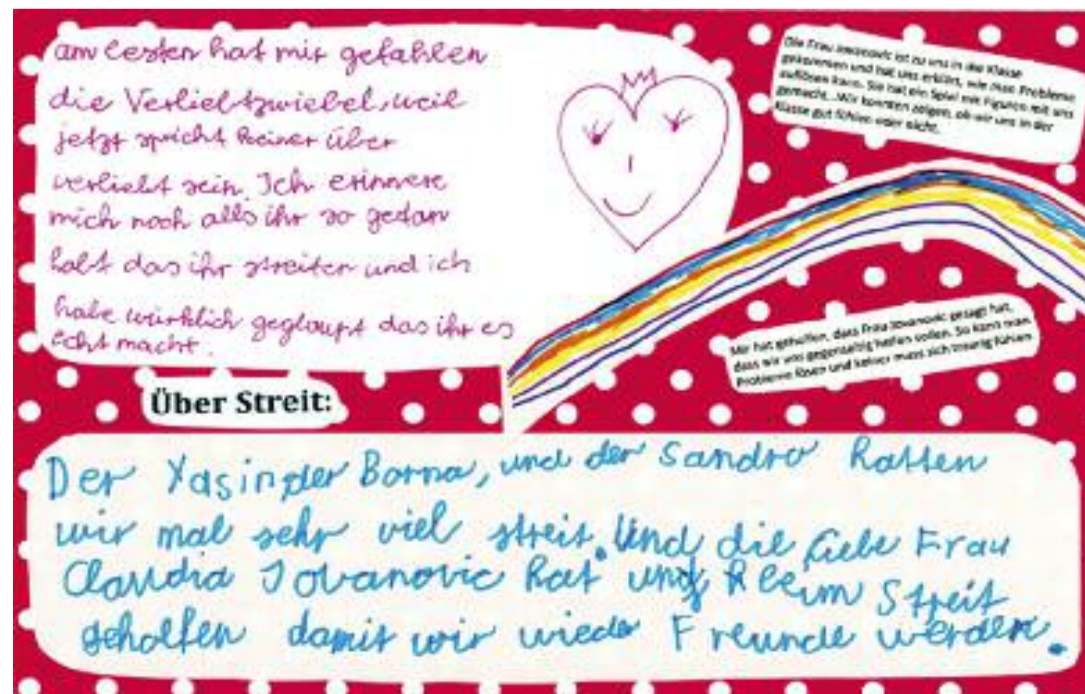 am besten hat mir gefahlen
die Verliebtzwiebel, weil
jetzt spricht keiner über
verliebt sein. Ich erinnere
mich noch alls ihr so gedan
habt das ihr streiten und ich
habe würklich geglaupt das ihr es
echt macht.
Die Frau Jovanovic ist zu uns in die Klasse
gekommen und hat uns erklärt, wie man Probleme
auflösen kann. Sie hat ein Spiel mit Figuren mit uns
gemacht...Wir konnten zeigen, ob wir uns in der
Klasse gut fühlen oder nicht.
Mir hat geholfen, dass Frau Jovanovic gesagt hat,
dass wir uns gegenseitig helfen sollen. So kann man
Probleme lösen und keiner muss sich traurig fühlen
Über Streit:
Der Yasin, der Borna, und der Sandro hatten
wir mal sehr viel streit. Und die liebe Frau
Claudia Jovanovic hat uns beim Streit
geholfen damit wir wieder Freunde werden.